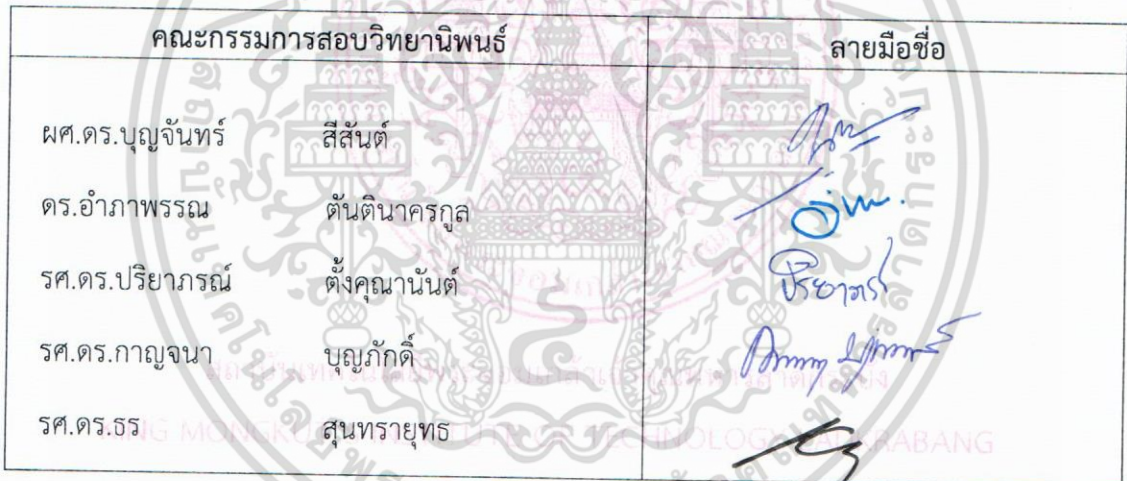 คณะกรรมการสอบวิทยานิพนธ์ ลายมือชื่อ
ผศ.ดร.บุญจันทร์ สีสันต์
ดร.อำภาพรรณ ตันตินาครกูล
รศ.ดร.ปริยาภรณ์ ตั้งคุณานันต์ ปริยาภรณ์
รศ.ดร.กาญจนา บุญภักดิ์
รศ.ดร.ธร สุนทรายุทธ
KING MONGKUT'S INSTITUTE OF TECHNOLOGY LADKRABANG